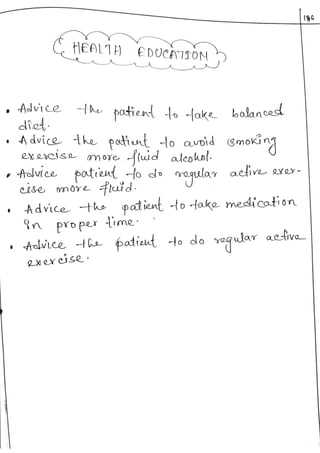 180
HEALTH EDUCATION
• Advice the patient to take balanced
diet.
• Advice the patient to avoid smoking
exercise more fluid alcohol.
• Advice patient to do regular active exer-
cise more fluid.
• Advice the patient to take medication
in proper time.
• Advice the patient to do regular active
exercise.